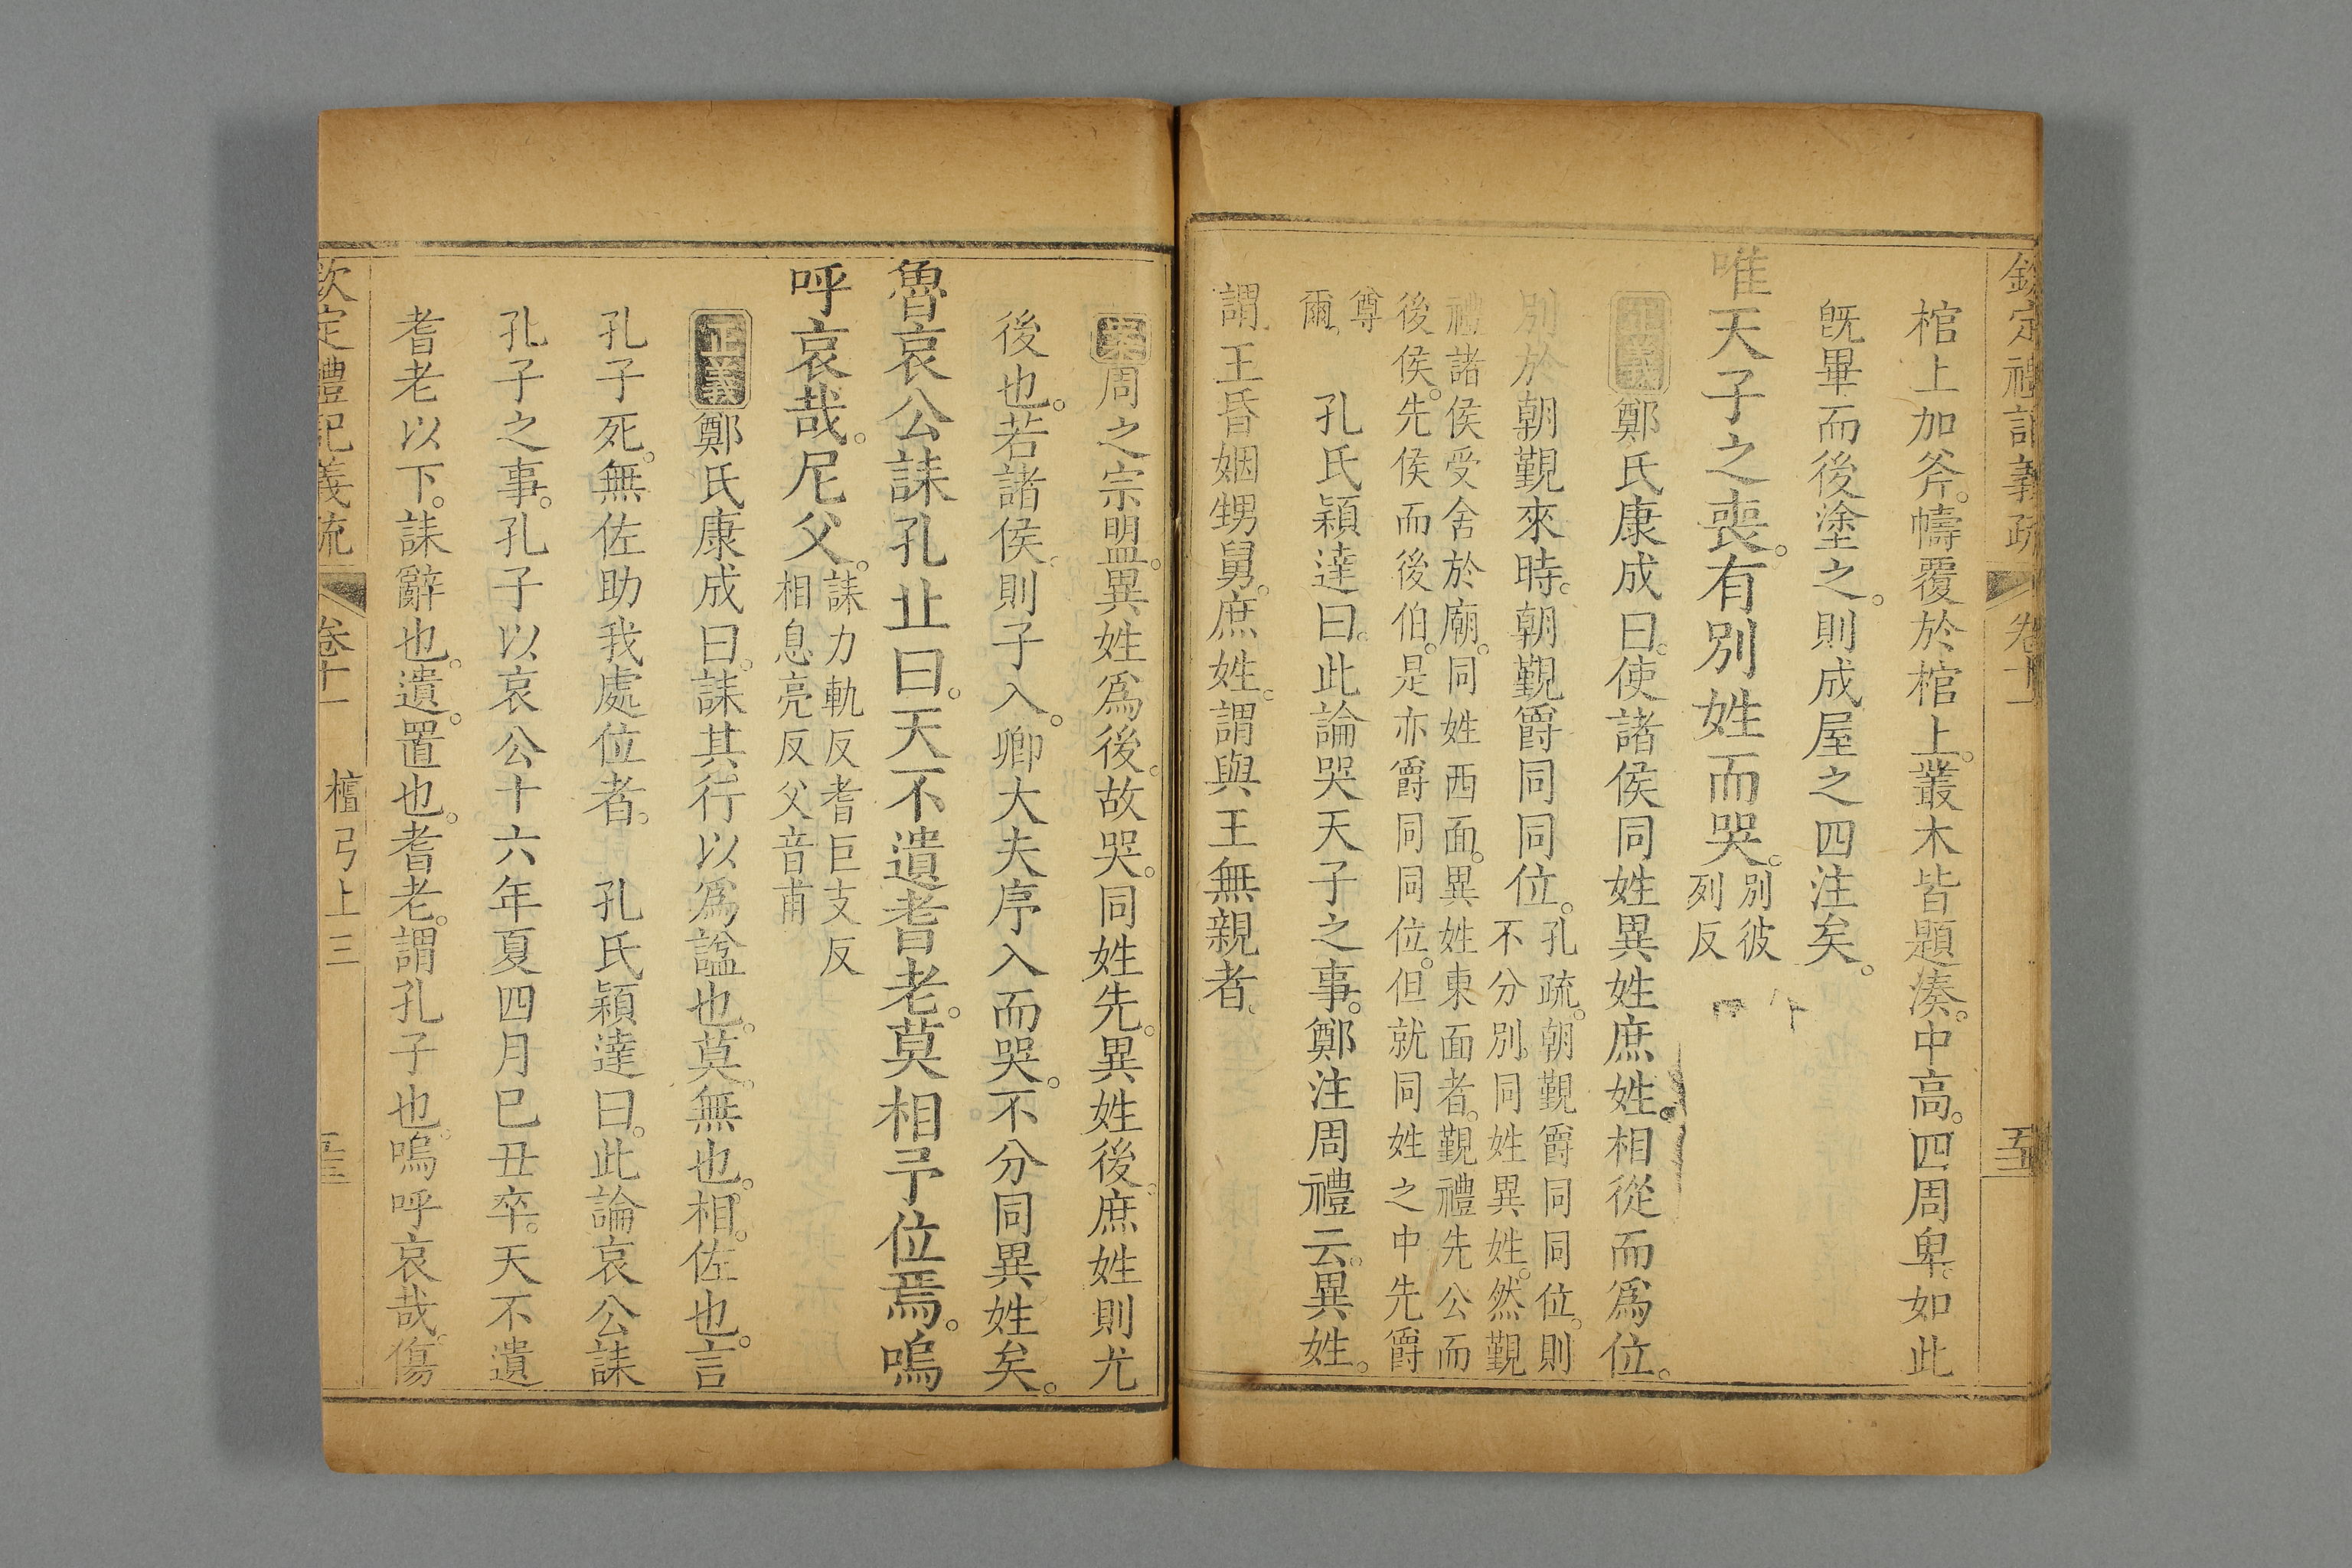 欽定禮記義疏 卷十一 五
棺上加斧。幬覆於棺上。叢木皆題湊。中高。四周卑。如此
旣畢而後塗之。則成屋之四注矣。
唯天子之喪。有別姓而哭。別彼
列反
正義鄭氏康成曰。使諸侯同姓異姓庶姓。相從而爲位。
別於朝覲來時。朝覲爵同同位。孔疏。朝覲爵同同位。則
不分別同姓異姓。然覲
禮諸侯受舍於廟。同姓西面。異姓東面者。覲禮先公而
後侯。先侯而後伯。是亦爵同同位。但就同姓之中先爵
尊
爾。 孔氏穎達曰。此論哭天子之事。鄭注周禮云。異姓。
謂王昏姻甥舅。庶姓。謂與王無親者。
案周之宗盟。異姓爲後。故哭。同姓先。異姓後。庶姓則尤
後也。若諸侯。則子入。卿大夫序入而哭。不分同異姓矣。
魯哀公誄孔丘曰。天不遺耆老。莫相予位焉。嗚
呼哀哉。尼父。誄力軌反耆巨支反
相息亮反父音甫
正義鄭氏康成曰。誄其行以爲諡也。莫。無也。相。佐也。言
孔子死。無佐助我處位者。 孔氏穎達曰。此論哀公誄
孔子之事。孔子以哀公十六年夏四月巳丑卒。天不遺
耆老以下。誄辭也。遺。置也。耆老。謂孔子也。嗚呼哀哉。傷
欽定禮記義疏 卷十一 檀弓上三